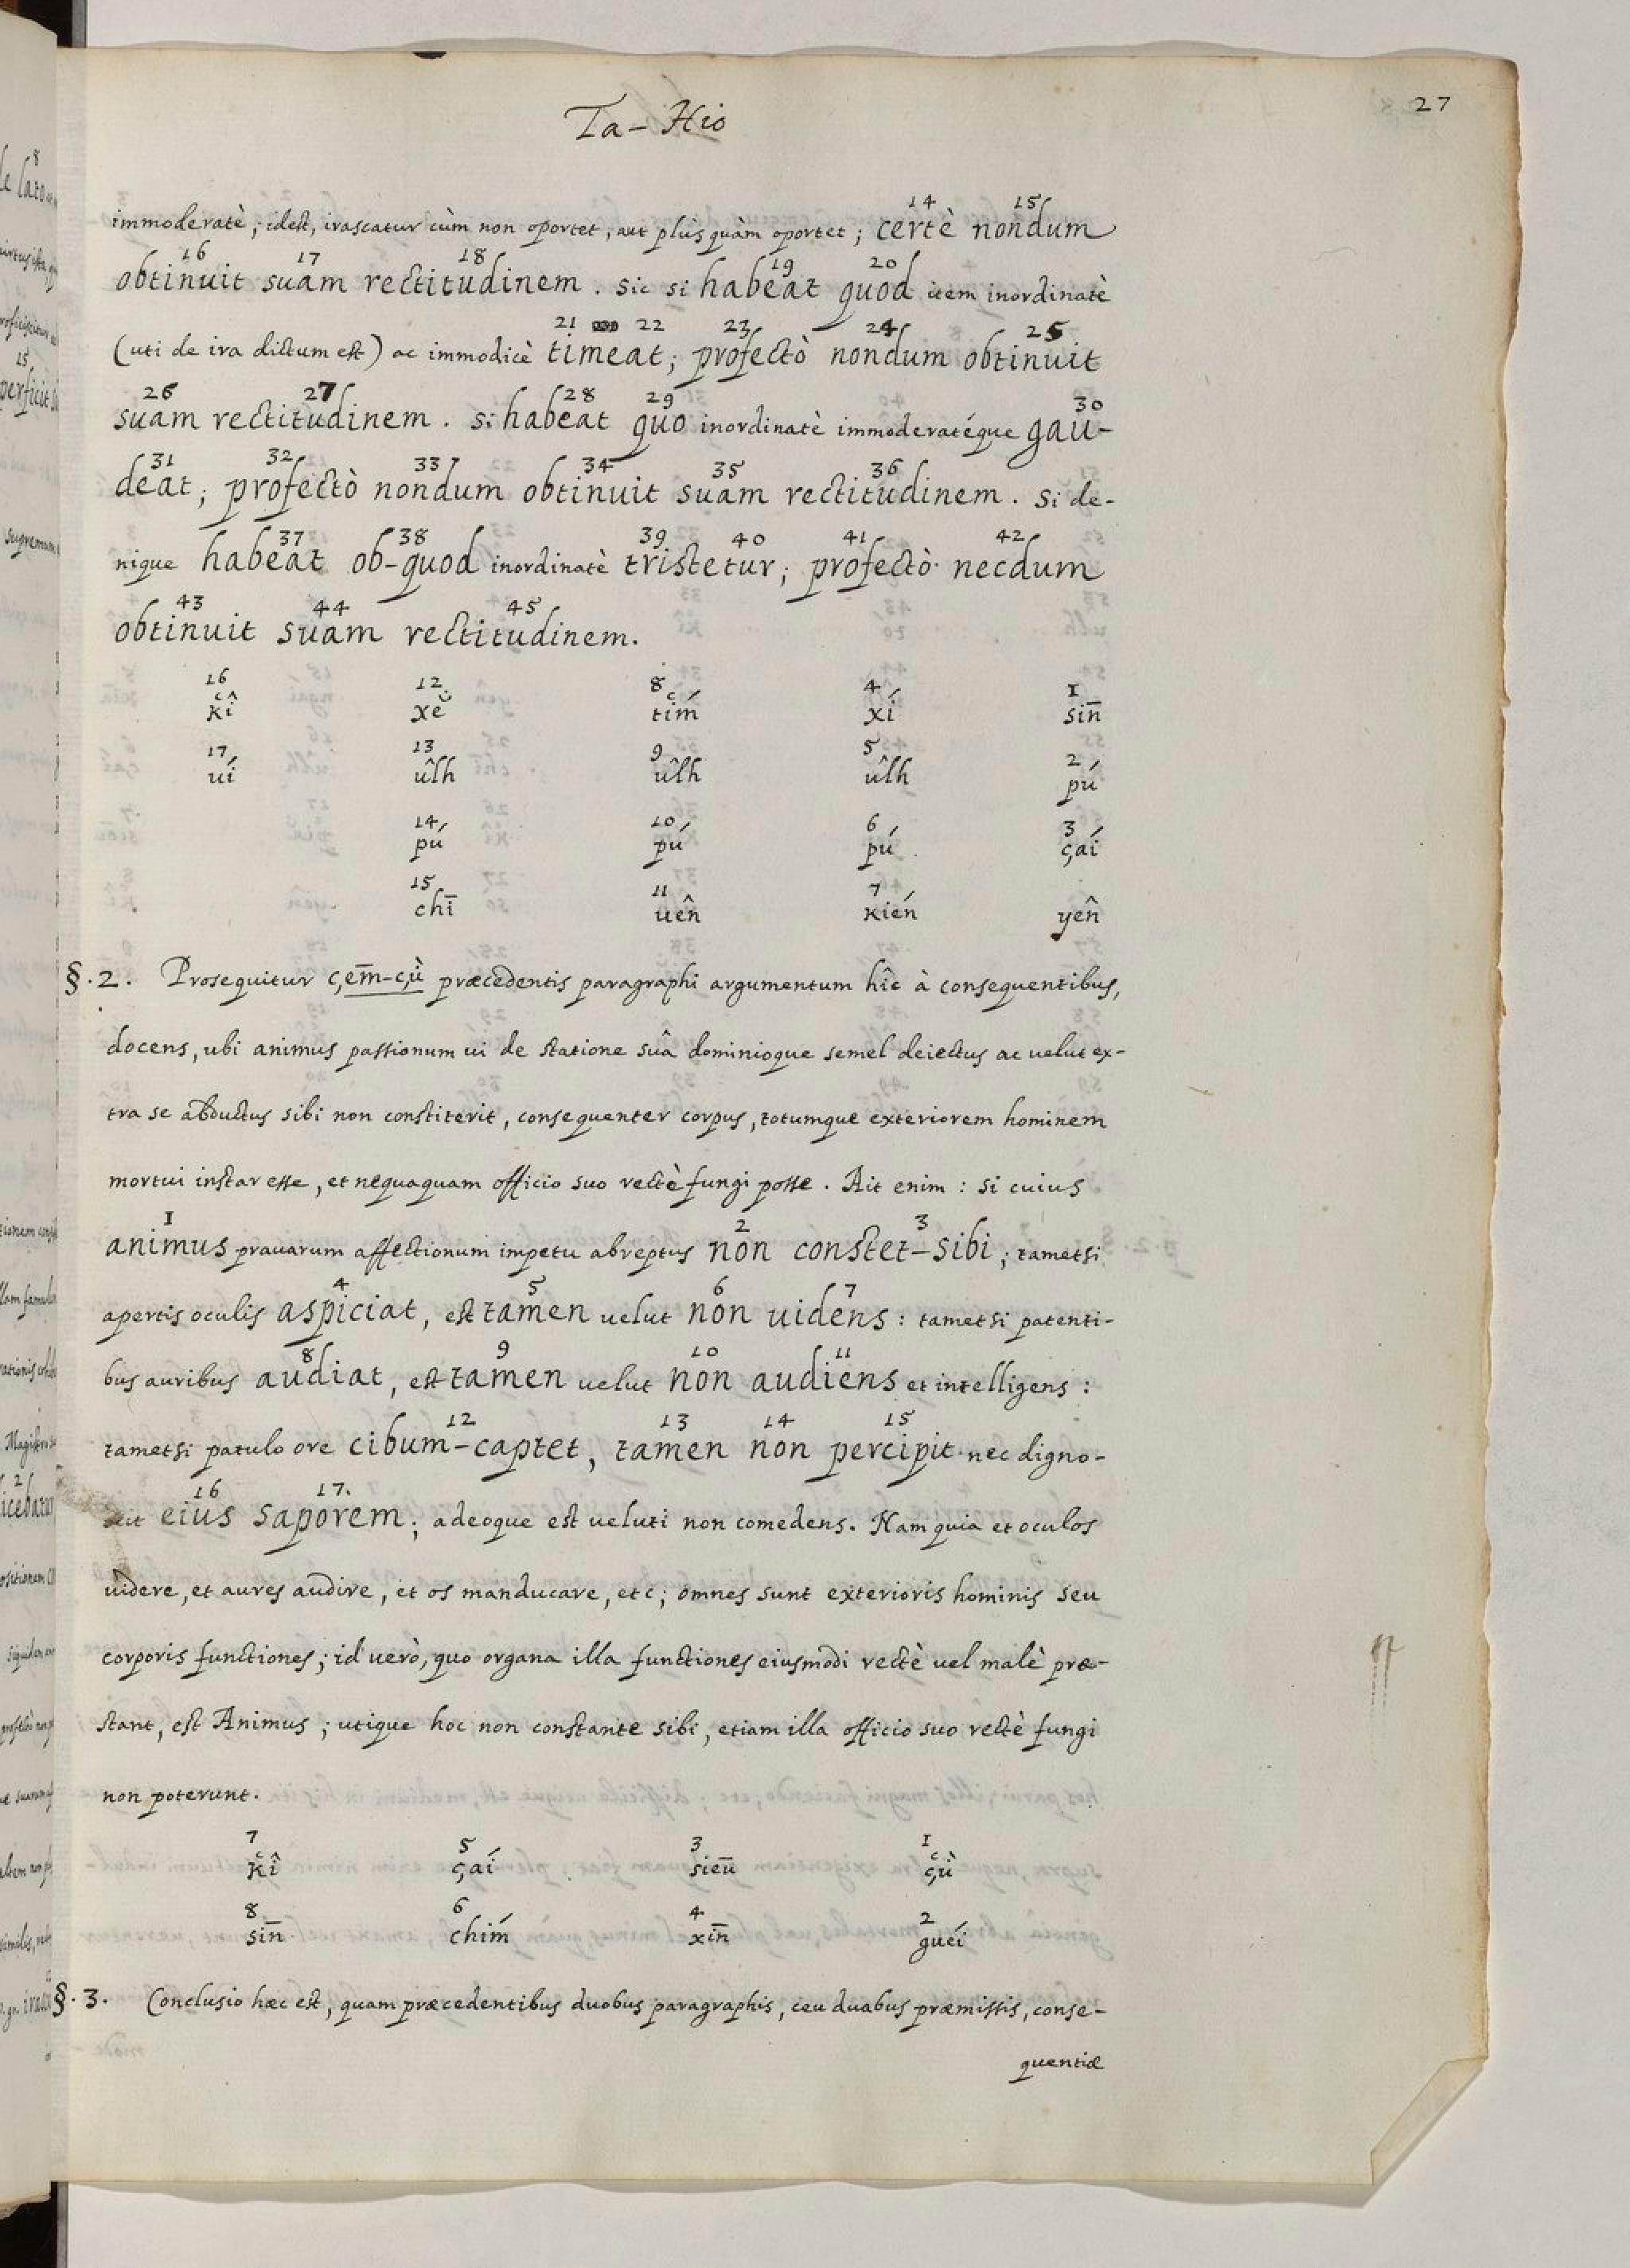 Ta-Hio
27
14 15
immoderatè; idest, irascatur cùm non oportet, aut plùs quàm oportet; certè nondum
16 17 18 19 20
obtinuit suam rectitudinem. sic si habeat quod item inordinatè
21 22 23 24 25
(uti de ira dictum est) ac immodicè timeat; profectò nondum obtinuit
26 27 28 29 30
suam rectitudinem. si habeat quo inordinatè immoderatéque gau-
31 32 33 34 35 36
deat; profectò nondum obtinuit suam rectitudinem. Si de-
37 38 39 40 41 42
nique habeat ob-quod inordinatè tristetur; profectò necdum
43 44 45
obtinuit suam rectitudinem.
16 12 8 4 1
kî xĕ tím xí sin̄
17 13 9 5 2
uí ûlh ûlh ûlh pú
14 10 6 3
pú pú pú çaí
15 11 7
chī uên kién yên
§.2. Prosequitur çem̄-çù præcedentis paragraphi argumentum hîc à consequentibus,
docens, ubi animus passionum ui de statione suâ dominioque semel deiectus ac uelut ex-
tra se abductus sibi non constiterit, consequenter corpus, totumque exteriorem hominem
mortui instar esse, et nequaquam officio suo rectè fungi posse. Ait enim: si cuius
1 2 3
animus prauarum affectionum impetu abreptus non constet-sibi; tametsi
4 5 6 7
apertis oculis aspiciat, est tamen uelut non uidens: tametsi patenti-
8 9 10 11
bus auribus audiat, est tamen uelut non audiens et intelligens:
12 13 14 15
tametsi patulo ore cibum-captet, tamen non percipit nec digno-
16 17.
scit eius saporem; adeoque est ueluti non comedens. Nam quia et oculos
uidere, et aures audire, et os manducare, etc; omnes sunt exterioris hominis seu
corporis functiones; id uerò, quo organa illa functiones eiusmodi rectè uel malè præ-
stant, est Animus; utique hoc non constante sibi, etiam illa officio suo rectè fungi
non poterunt.
7 5 3 1
kî çaí sieū çù
8 6 4 2
sin̄ chím xin̄ gueí
§.3. Conclusio hæc est, quam præcedentibus duobus paragraphis, ceu duabus præmissis, conse-
quentiæ